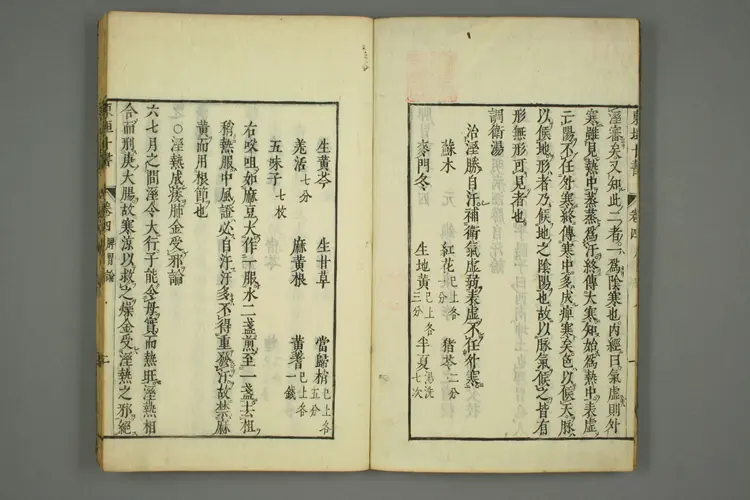 溼審矣又知此二者一爲陰寒也内經曰氣虛則外
寒雖見熱中蒸蒸爲汗終傳大寒知始爲熱中表虛
亡陽不任外寒終傳寒中多成痺寒矣色以候天脉
以候地形者乃候地之陰陽也故以脉氣候之皆有
形無形可見者也
調衛湯
治溼勝自汗補衛氣虛弱表虛不任外寒
蘇木 紅花已上各一分 猪苓二分
麥門冬 生地黃已上各三分 半夏湯洗七次
生黃芩 生甘草 當歸梢已上各五分
羌活七分 麻黃根 黃耆已上各一錢
五味子七枚
右㕮咀如麻豆大作一服水二盞煎至一盞去粗
稍熱服中風證必自汗汗多不得重發汗故禁麻
黃而用根節也
○溼熱成痿肺金受邪論
六七月之間溼令大行子能令母實而熱旺溼熱相
合而刑庚大腸故寒涼以救之燥金受溼熱之邪絕
東垣十書 卷四 脾胃論